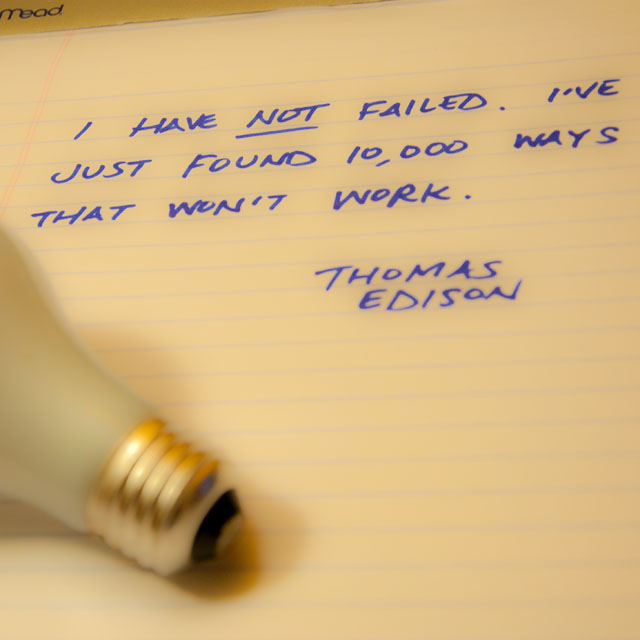 Mead
I HAVE NOT FAILED. I'VE
JUST FOUND 10,000 WAYS
THAT WON'T WORK.
THOMAS
EDISON